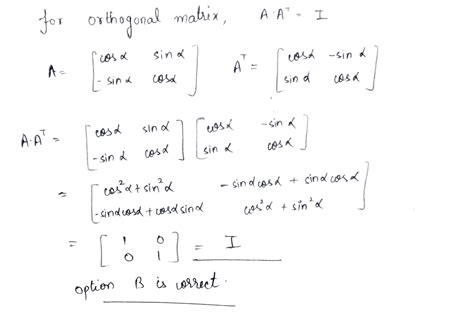 for orthogonal matrix, A·Aᵀ = I
A = [cos α sin α Aᵀ = [cos α -sin α
- sin α cos α] sin α cos α]
A·Aᵀ = [cos α sin α [cos α -sin α
-sin α cos α] sin α cos α]
= [cos²α + sin²α - sin α cos α + sin α cos α
-sin α cos α + cos α sin α cos²α + sin²α]
= [1 0
0 1] = I
option B is correct.